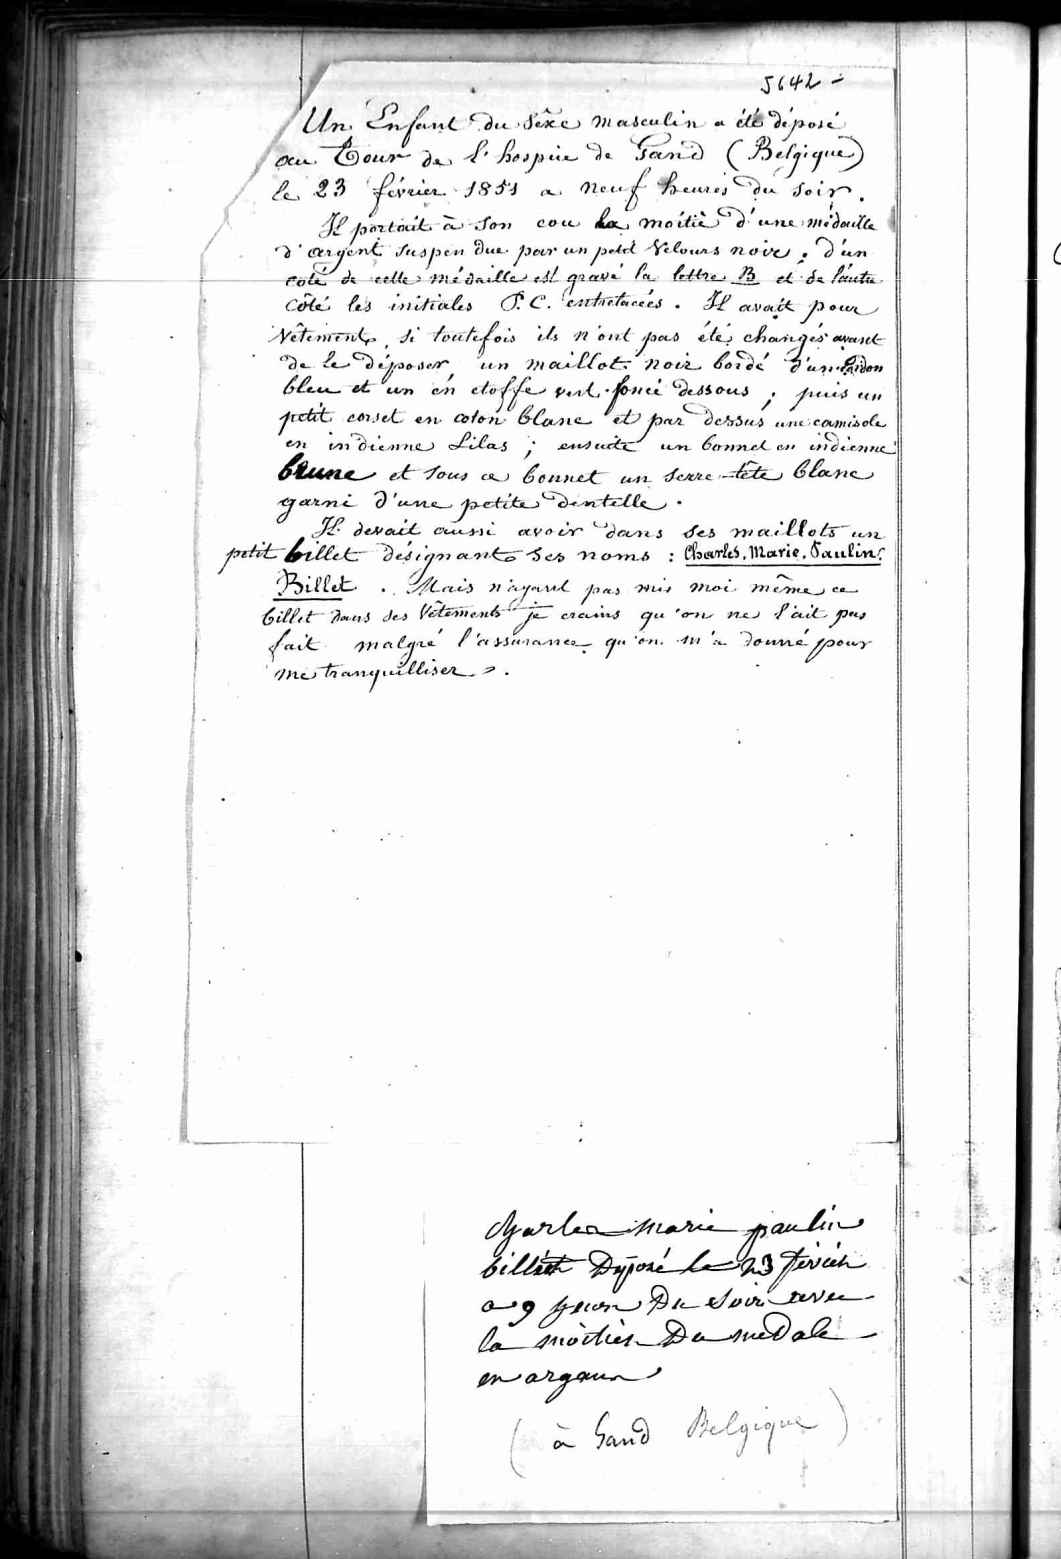 5642 -
Un Enfant du Sêxe masculin a été déposé
au Tour de l'hospice de Gand (Belgique)
le 23 février 1851 a neuf heures du soir.
Il portait à son cou la moitié d'une médaille
d'argent suspendue par un petit velours noir ; d'un
coté de cette médaille est gravé la lettre B et de l'autre
côté les initiales P.C. entrelacées. Il avait pour
Vêtements, si toutefois ils n'ont pas été changés avant
de le déposer, un maillot noir bordé d'un cordon
bleu et un en etoffe vert foncé dessous ; puis un
petit corset en coton blanc et par dessus une camisole
en indienne Lilas ; ensuite un bonnet en indienne
brune et sous ce bonnet un serre-tête blanc
garni d'une petite dentelle.
Il devait aussi avoir dans ses maillots un
petit billet désignant ses noms : Charles. Marie. Paulin.
Billet. Mais n'ayant pas mis moi même ce
billet dans ses Vêtements je crains qu'on ne l'ait pas
fait malgré l'assurance qu'on m'a donné pour
me tranquilliser ».
Charles marie paulin
billet Déposé le 23
a 9 Du soir avec
la Da medale
en
(à Gand Belgique)